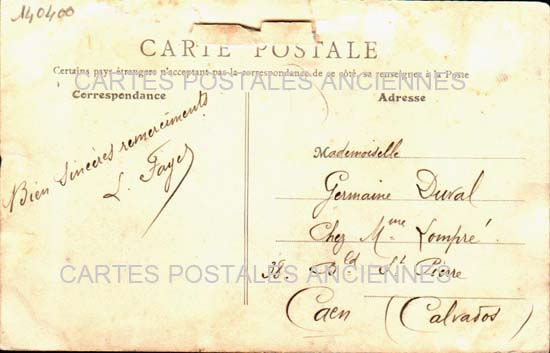 140400
CARTE POSTALE
Certains pays étrangers n'acceptant pas la correspondance de ce côté, se renseigner à la Poste
CARTES POSTALES ANCIENNES
Correspondance
Adresse
Bien sincères remerciments
L. Faye
Mademoiselle
Germaine Duval
Chez Mme Lompré
38. Bld St Pierre
CARTES POSTALES ANCIENNES
Caen (Calvados)